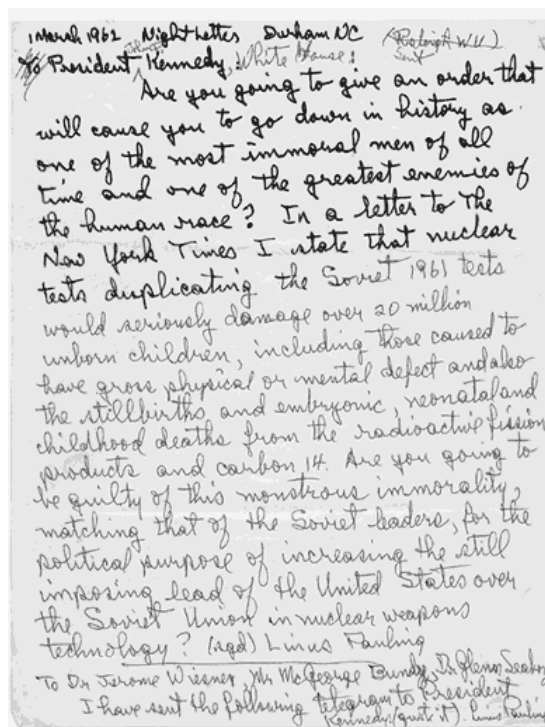 1 March 1962 Night Letter Durham NC (Raleigh W U)
To President John F. Kennedy, White House: Sent
Are you going to give an order that
will cause you to go down in history as
one of the most immoral men of all
time and one of the greatest enemies of
the human race? In a letter to The
New York Times I state that nuclear
tests duplicating the Soviet 1961 tests
would seriously damage over 20 million
unborn children, including those caused to
have gross physical or mental defect and also
the stillbirths and embryonic, neonatal and
childhood deaths from the radioactive fission
products and carbon 14. Are you going to
be guilty of this monstrous immorality,
matching that of the Soviet leaders, for the
political purpose of increasing the still
imposing lead of the United States over
the Soviet Union in nuclear weapons
technology? (sgd) Linus Pauling
To Dr Jerome Wiesner, Mr McGeorge Bundy, Dr Glenn Seaborg
I have sent the following telegram to President
Kennedy (quote it). Linus Pauling